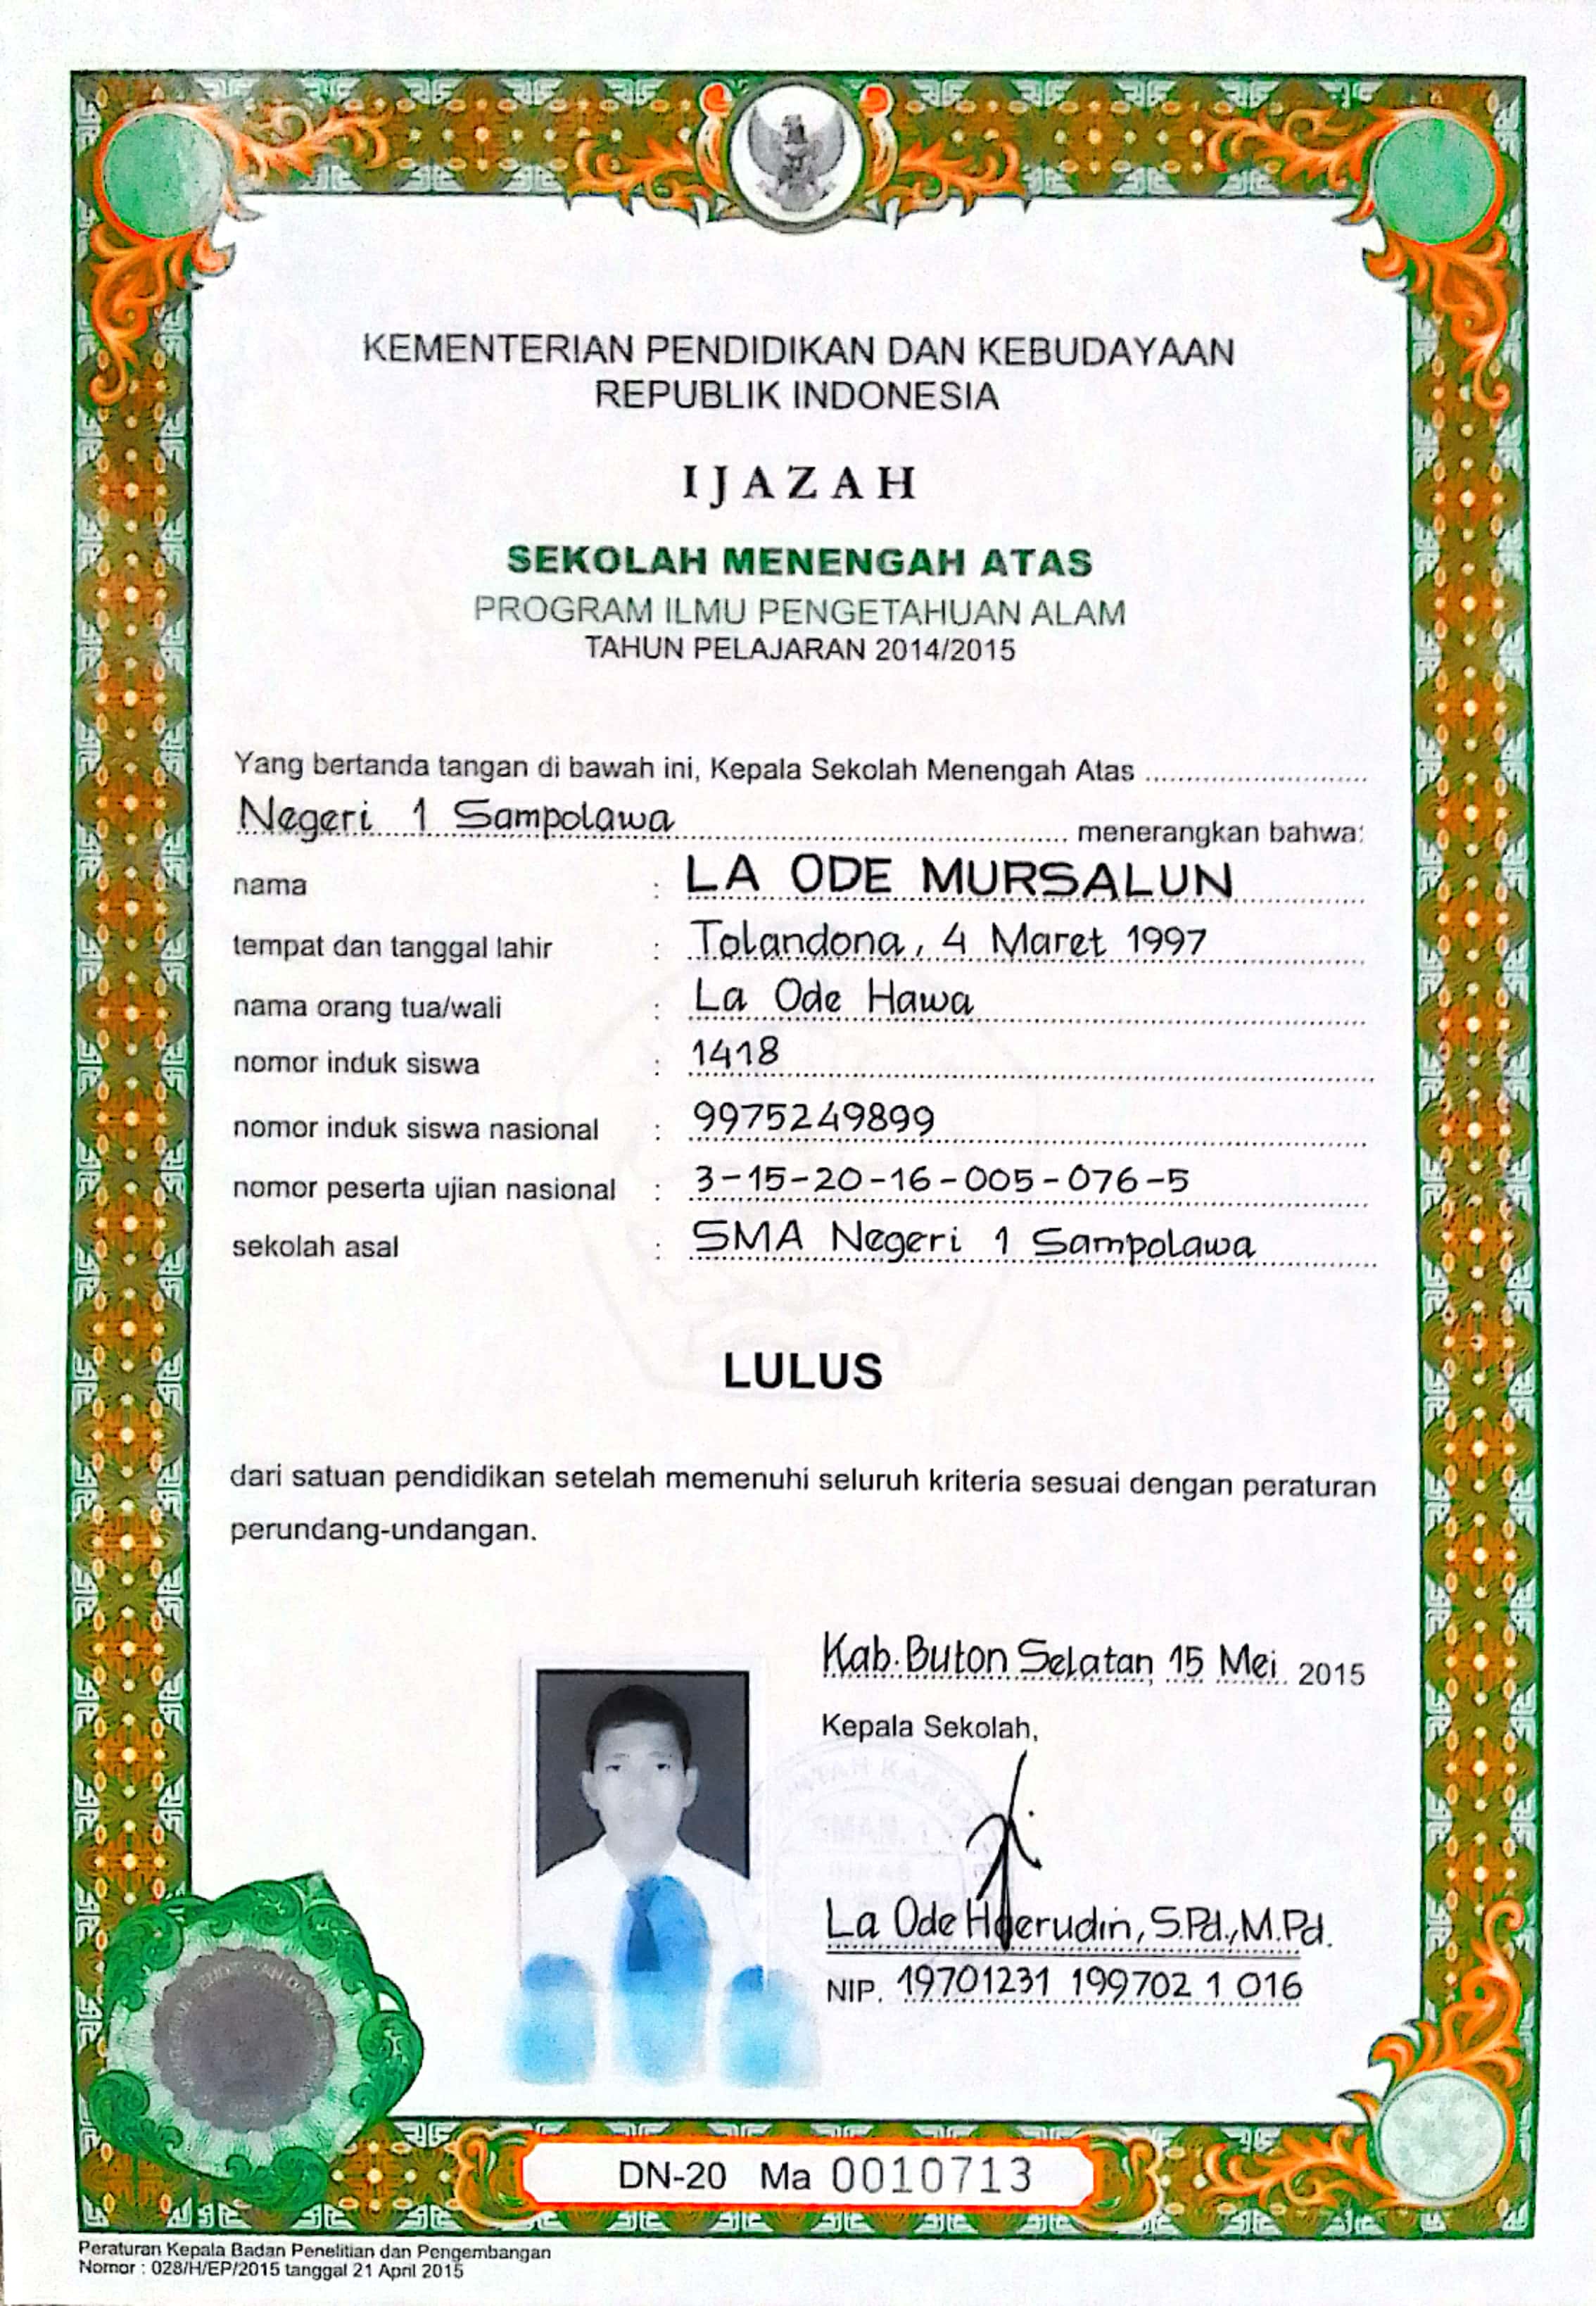 KEMENTERIAN PENDIDIKAN DAN KEBUDAYAAN
REPUBLIK INDONESIA
IJAZAH
SEKOLAH MENENGAH ATAS
PROGRAM ILMU PENGETAHUAN ALAM
TAHUN PELAJARAN 2014/2015
Yang bertanda tangan di bawah ini, Kepala Sekolah Menengah Atas
Negeri 1 Sampolawa menerangkan bahwa:
nama : LA ODE MURSALUN
tempat dan tanggal lahir : Tolandona, 4 Maret 1997
nama orang tua/wali : La Ode Hawa
nomor induk siswa : 1418
nomor induk siswa nasional : 9975249899
nomor peserta ujian nasional : 3-15-20-16-005-076-5
sekolah asal : SMA Negeri 1 Sampolawa
LULUS
dari satuan pendidikan setelah memenuhi seluruh kriteria sesuai dengan peraturan
perundang-undangan.
Kab. Buton Selatan, 15 Mei 2015
Kepala Sekolah,
La Ode Haerudin, S.Pd., M.Pd.
NIP. 19701231 199702 1 016
DN-20 Ma 0010713
Peraturan Kepala Badan Penelitian dan Pengembangan
Nomor : 028/H/EP/2015 tanggal 21 April 2015